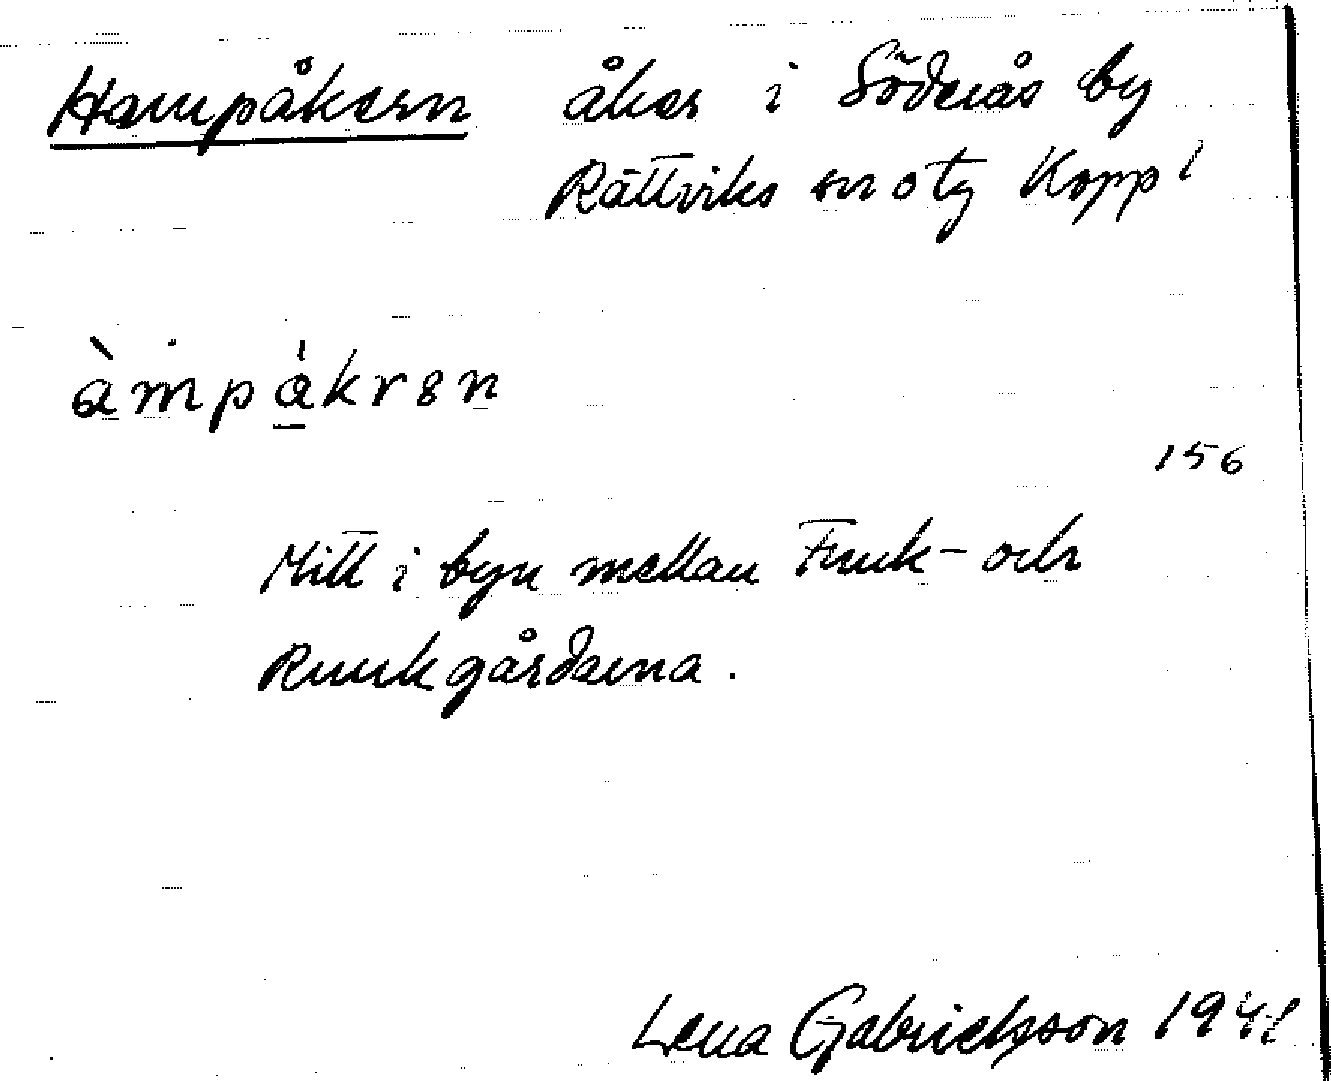 Hampåkern åker i Söderås by
Rättviks sn o tg Kopp l
àmpåkrən
156
Mitt i byn mellan Funk- och
Runkgårdarna.
Lena Gabrielsson 1941